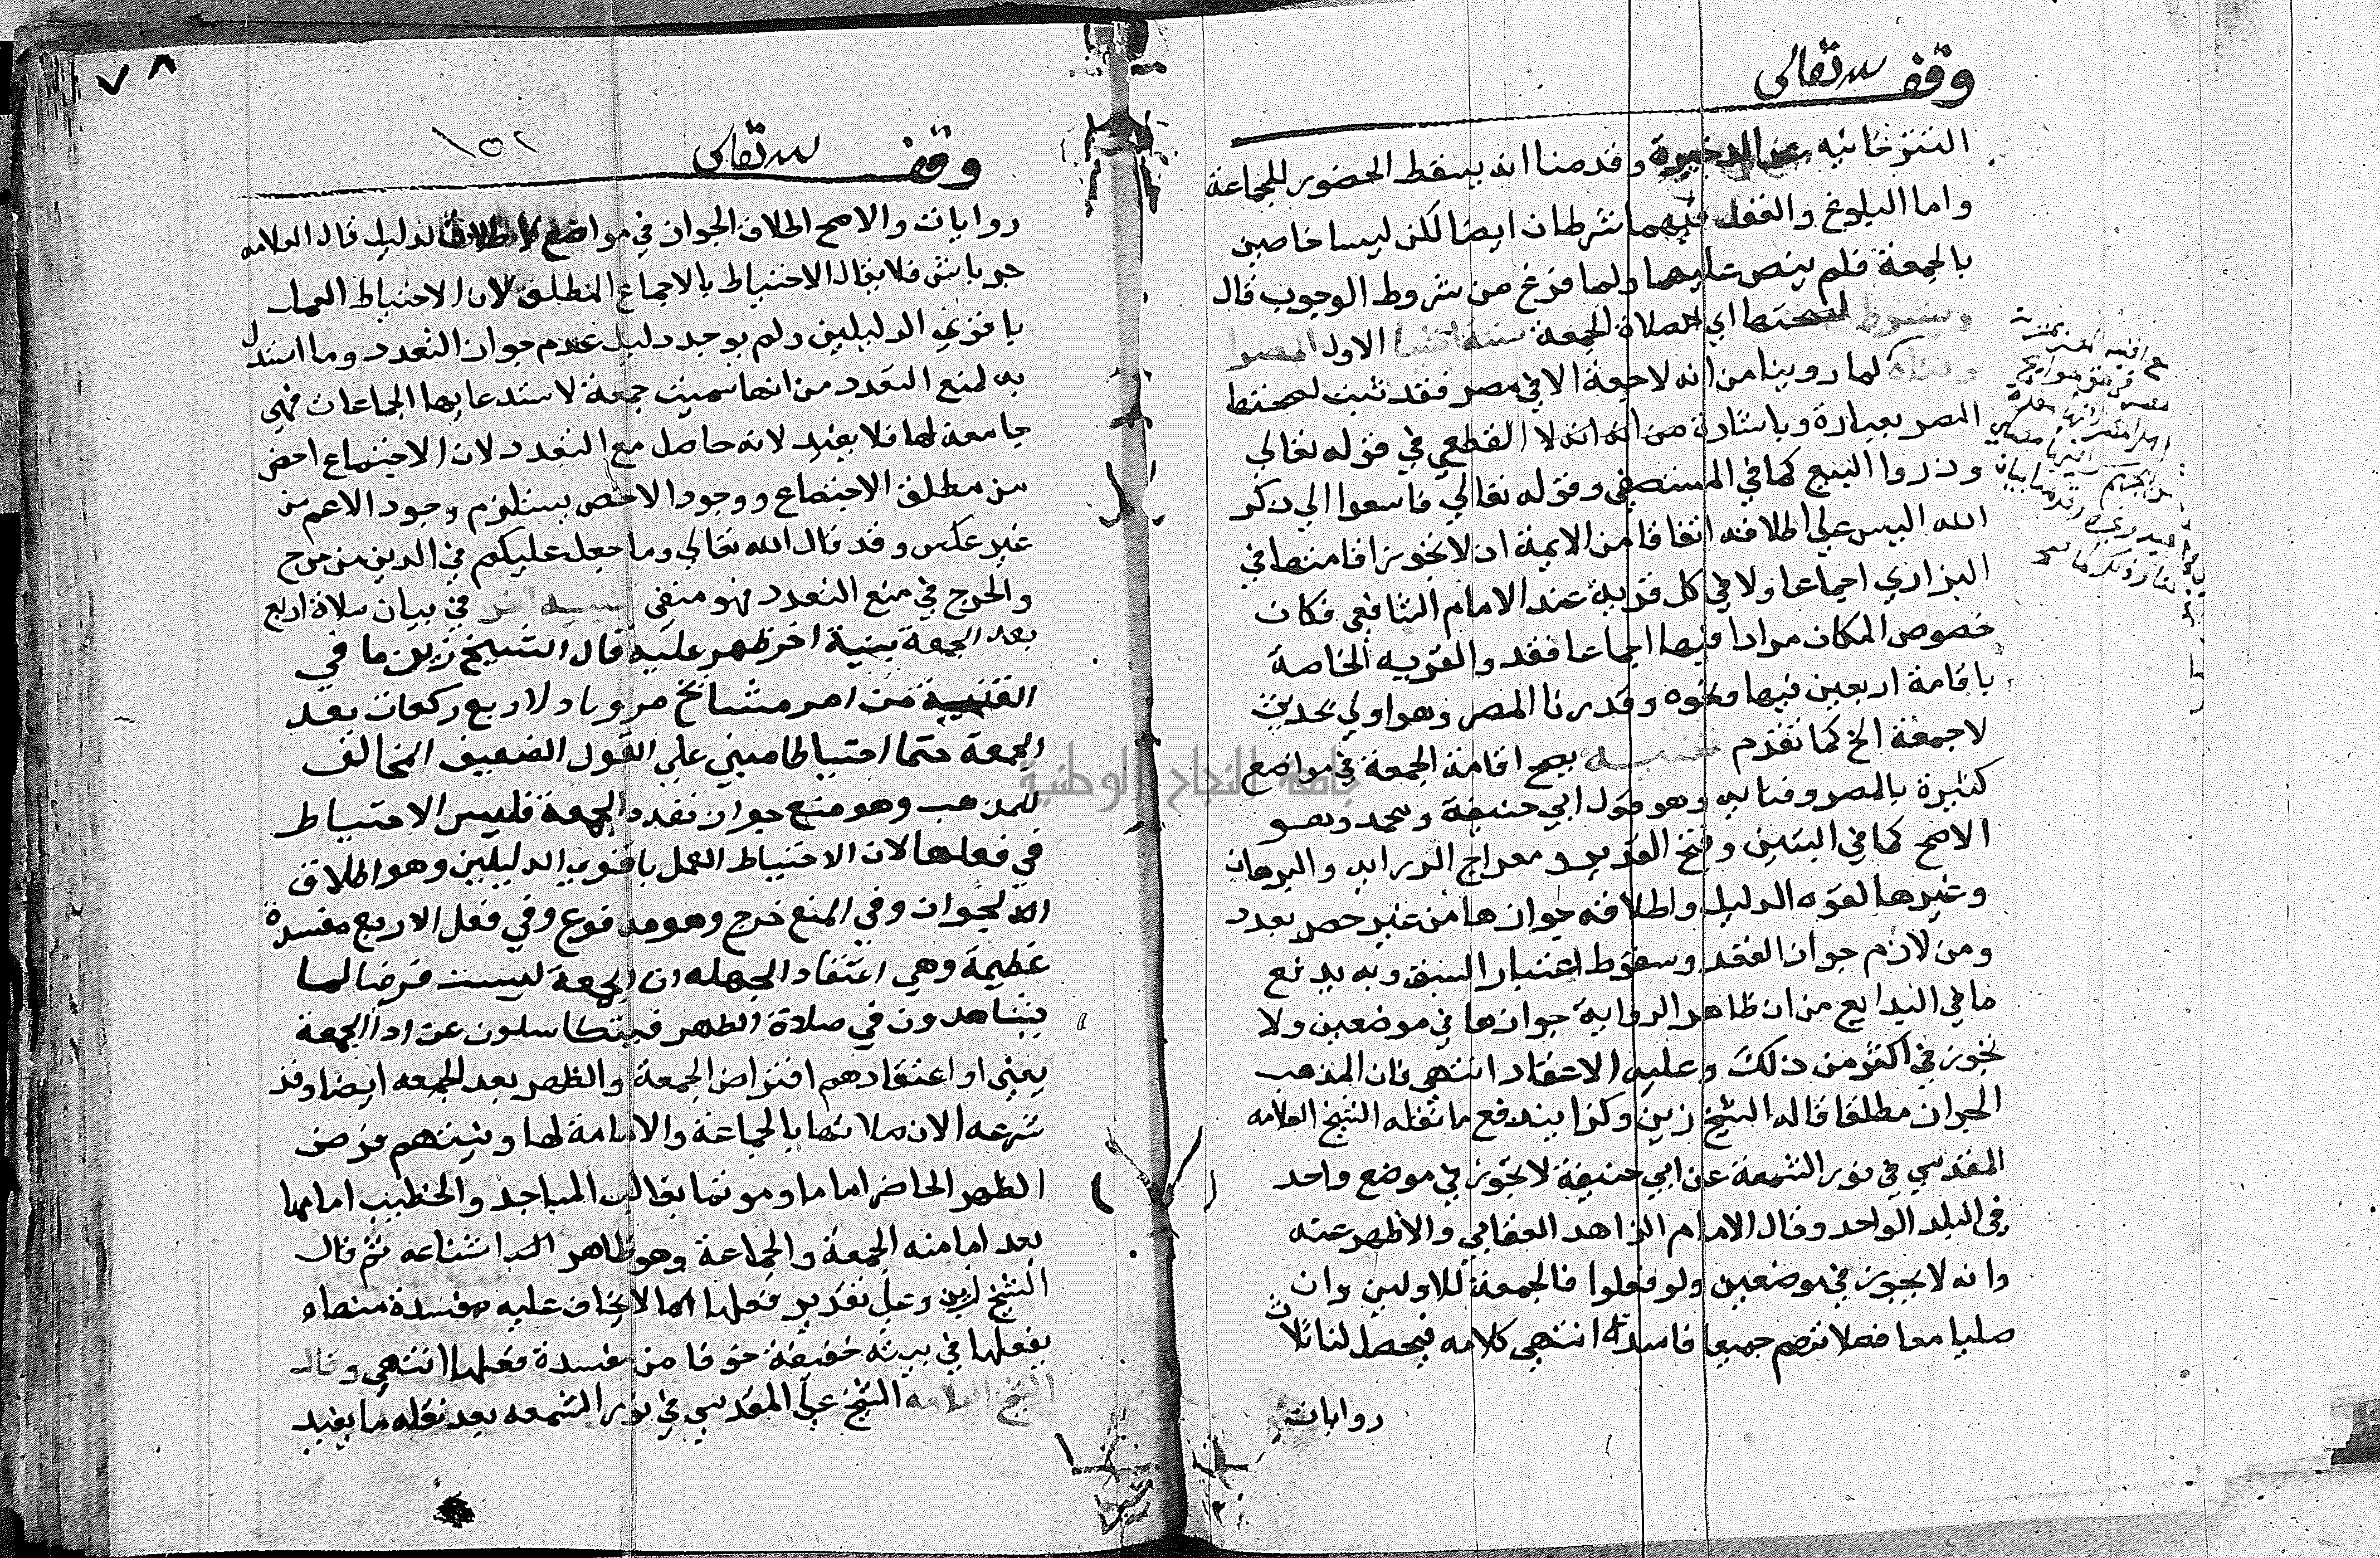 وقف لله تعالى
التترخانيه عن الذخيرة وقدمنا انه يسقط الحضور للجماعة
واما البلوغ والعقل فليهما شرطان ايضا لكن ليسا خاصين
بالجمعة فلم ينص عليهما ولما فرغ من شروط الوجوب قال
ويشترط لصحتها اي صلاة الجمعة ستة اشيا الاول المصر او
فناه كما روينا من انه لاجمعة الا في مصر فقد ثبت لصحتها
المصر بعبارة وباشارة من انه لا القطعي في قوله تعالى
وذروا البيع كما في المستصفى وقوله تعالي فاسعوا الي ذكر
الله اليس علي اطلاقه اتفاقا من الايمة ان لا تجوز اقامتها في
البراري اجماعا ولا في كل قرية عند الامام الشافعي فكان
خصوص المكان مرادا فيها اجماعا فقد والقريه الخاصة
باقامة اربعين فيها ونحوه وقدرنا المصر وهو اولي بحديث
لا جمعة الخ كما تقدم تنبيه يصح اقامة الجمعة في مواضع
كثيرة بالمصر وفنايه وهو قول ابي حنيفة ومحمد وهو
الاصح كما في التبين وفتح القدير ومعراج الدرايه والبرهان
وغيرها لقوه الدليل واطلاقه جوازها من غير حصر بعدد
ومن لازم جواز العقد وسقوط اعتبار السبق وبه يدفع
ما في البدايع من ان ظاهر الرواية جوازها في موضعين ولا
تجوز في اكثر من ذلك وعليه الاعتماد انتهي فان المذهب
الجواز مطلقا قاله الشيخ زين وكذا يندفع ما نقله الشيخ العلامه
المقدسي في نور الشمعة عن ابي حنيفة لا تجوز في موضع واحد
في البلد الواحد وقال الامام الزاهد العقابي والاظهر عنه
وانه لا يجوز في موضعين ولو فعلوا فالجمعة للاولين وان
صليا معا فصلاتهم جميعا فاسدة انتهي كلامه فيحصل لنا ثلاث
روايات
٧٨
وقف لله تعالى
١٥٢
روايات والاصح اطلاق الجواز في مواضع لاطلاق الدليل قال العلامه
جرباش فلا يقال الاحتياط بالاجماع المطلق لان الاحتياط العمل
باقوي الدليلين ولم يوجد دليل عدم جواز التعدد وما استدل
به لمنع التعدد من انها سميت جمعة لاستدعايها الجماعات فهي
جامعة لها فلا يفيد لانه حاصل مع التعدد لان الاجتماع اخص
من مطلق الاجتماع ووجود الاخص يستلزم وجود الاعم من
غير عكس وقد قال الله تعالي وما جعل عليكم في الدين من حرج
والحرج في منع التعدد فهو منفي تنبيه اخر في بيان صلاة اربع
بعد الجمعة بنية اخر ظهر عليه قال الشيخ زين ما في
القنية من امر مشايخ مرو باداء اربع ركعات بعد
الجمعة حتما احتياطا مبني علي القول الضعيف المخالف
للمذهب وهو منع جواز تعدد الجمعة فليس الاحتياط
في فعلها لان الاحتياط العمل باقوي الدليلين وهو اطلاق
الجواز وفي المنع حرج وهو مدفوع وفي فعل الاربع مفسدة
عظيمة وهي اعتقاد الجهله ان الجمعة ليست فرضا لما
يشاهدون في صلاة الظهر فيتكاسلون عن ادا الجمعة
يعني او اعتقادهم افتراض الجمعة والظهر بعد الجمعه ايضا وقد
شرعه الان صلاتها بالجماعة والاقامة لها ونيتهم فرض
الظهر الحاضر اماما وموتما بغالب المساجد والخطيب امامها
بعد امامته الجمعة والجماعة وهو ظاهر الشناعه ثم قال
الشيخ زين وعلي تقدير فعلها مما لا يخاف عليه مفسدة منها
يفعلها في بيته خفيفة خوفا من مفسدة فعلها انتهي وقال
الشيخ العلامه الشيخ علي المقدسي في نور الشمعه بعد نقله ما يفيد
جامعة النجاح الوطنية